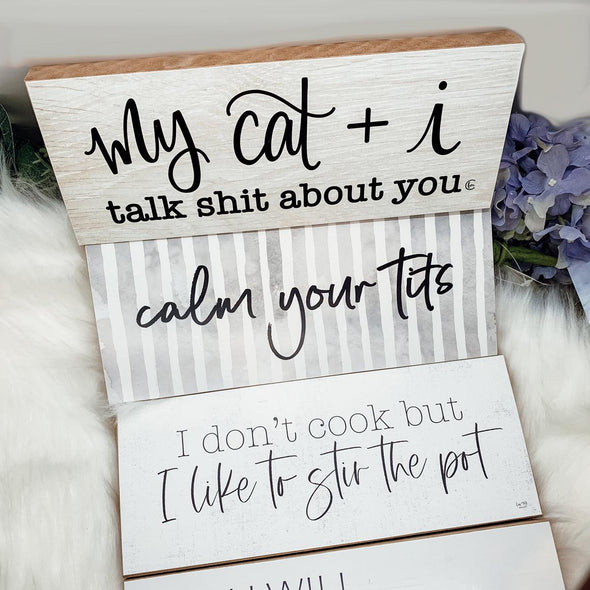 my cat + i
talk shit about you
calm your tits
I don't cook but
I like to stir the pot
WILL